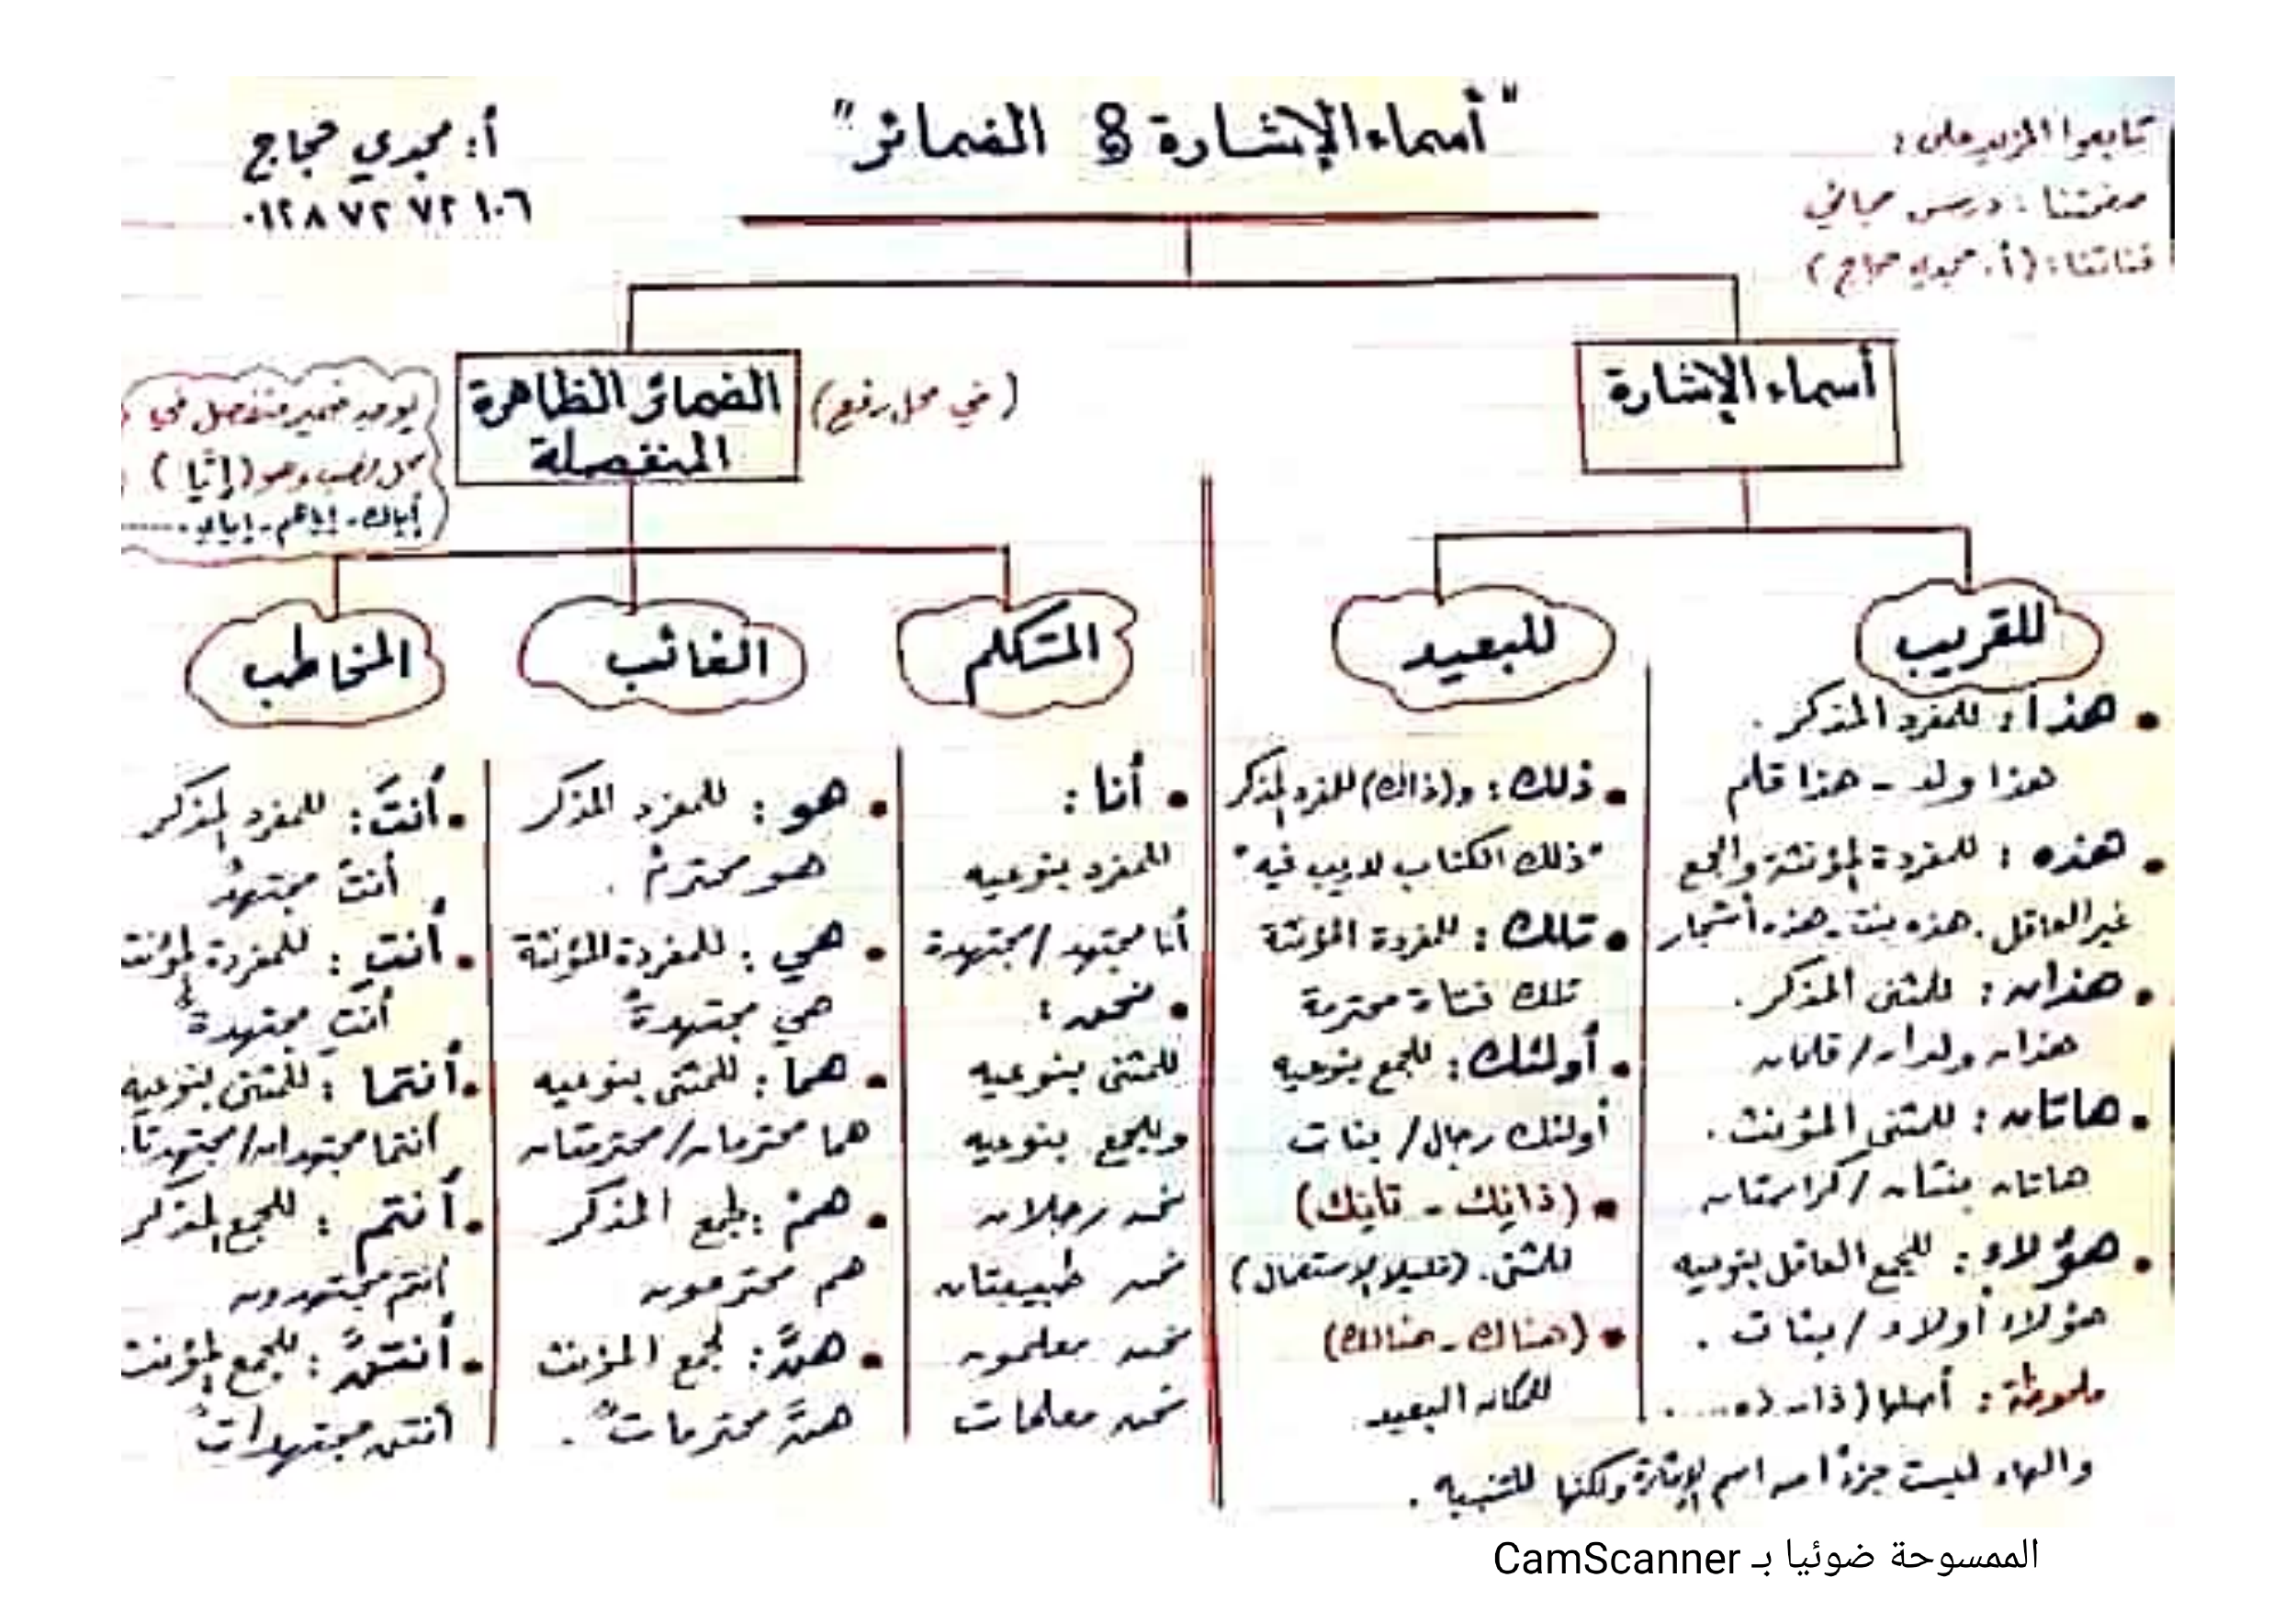 "أسماء الإشارة & الضمائر"
تابعوا المزيد على:
صفحتنا: درس مجاني
قناتنا: (أ. مجدي حجاج)
أ: مجدي حجاج
٠١٢٨٧٢٧٢١٠٦
أسماء الإشارة
للقريب
• هذا: للمفرد المذكر.
هذا ولد - هذا قلم
• هذه: للمفردة المؤنثة والجمع
غير العاقل. هذه بنت. هذه أشجار
• هذان: للمثنى المذكر.
هذان ولدان/قلمان
• هاتان: للمثنى المؤنث.
هاتان بنتان/كراستان
• هؤلاء: للجمع العاقل بنوعيه
هؤلاء أولاد/بنات.
ملحوظة: أصلها (ذا،
والهاء ليست جزءًا من اسم الإشارة ولكنها للتنبيه.
للبعيد
• ذلك: و(ذاك) للمفرد المذكر
"ذلك الكتاب لا ريب فيه"
• تلك: للمفردة المؤنثة
تلك فتاة محترمة
• أولئك: للجمع بنوعيه
أولئك رجال/بنات
• (ذانِك - تانِك)
للمثنى. (قليلا الاستعمال)
• (هناك - هنالك)
للمكان البعيد
الضمائر الظاهرة
المنفصلة
(في محل رفع)
يوجد ضمير منفصل في
محل نصب وهو (إيّا)
إياك - إياهم - إياي .....
المتكلم
• أنا:
للمفرد بنوعيه
أنا مجتهد/مجتهدة
• نحن:
للمثنى بنوعيه
وللجمع بنوعيه
نحن رجلان
نحن طبيبتان
نحن معلمون
نحن معلمات
الغائب
• هو: للمفرد المذكر
هو محترمٌ.
• هي: للمفردة المؤنثة
هي مجتهدةٌ
• هما: للمثنى بنوعيه
هما محترمان/محترمتان
• همْ: لجمع المذكر
هم محترمون
• هنَّ: لجمع المؤنث
هنَّ محترماتٌ.
المخاطب
• أنتَ: للمفرد المذكر
أنتَ مجتهدٌ
• أنتِ: للمفردة المؤنث
أنتِ مجتهدةٌ
• أنتما: للمثنى بنوعيه
أنتما مجتهدان/مجتهدتا
• أنتم: للجمع المذكر
أنتم مجتهدون
• أنتنَّ: للجمع المؤنث
أنتن مجتهداتٌ
الممسوحة ضوئيا بـ CamScanner